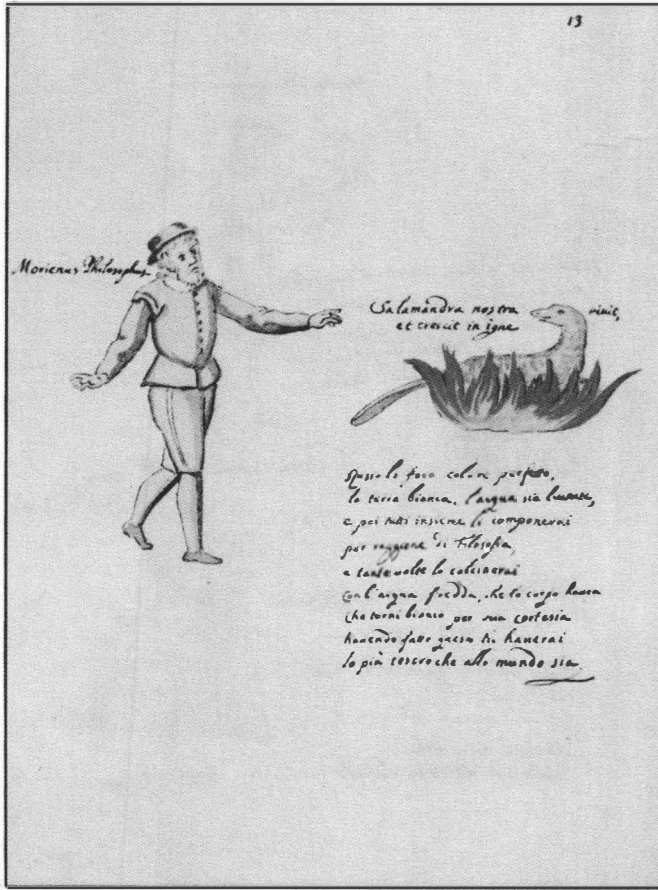 13
Morienus Philosophus
Salamandra nostra vivit,
et crescit in igne
lo foco colore perfetto,
la terra bianca, l'acqua sia
e poi tutti insieme li componerai
per raggione di Filosofia,
e tante volte lo calcinerai
con l'acqua fredda, che lo corpo
che torni bianco per sua cortesia
havendo fatto questo tu haverai
lo più tesoro che allo mundo sia